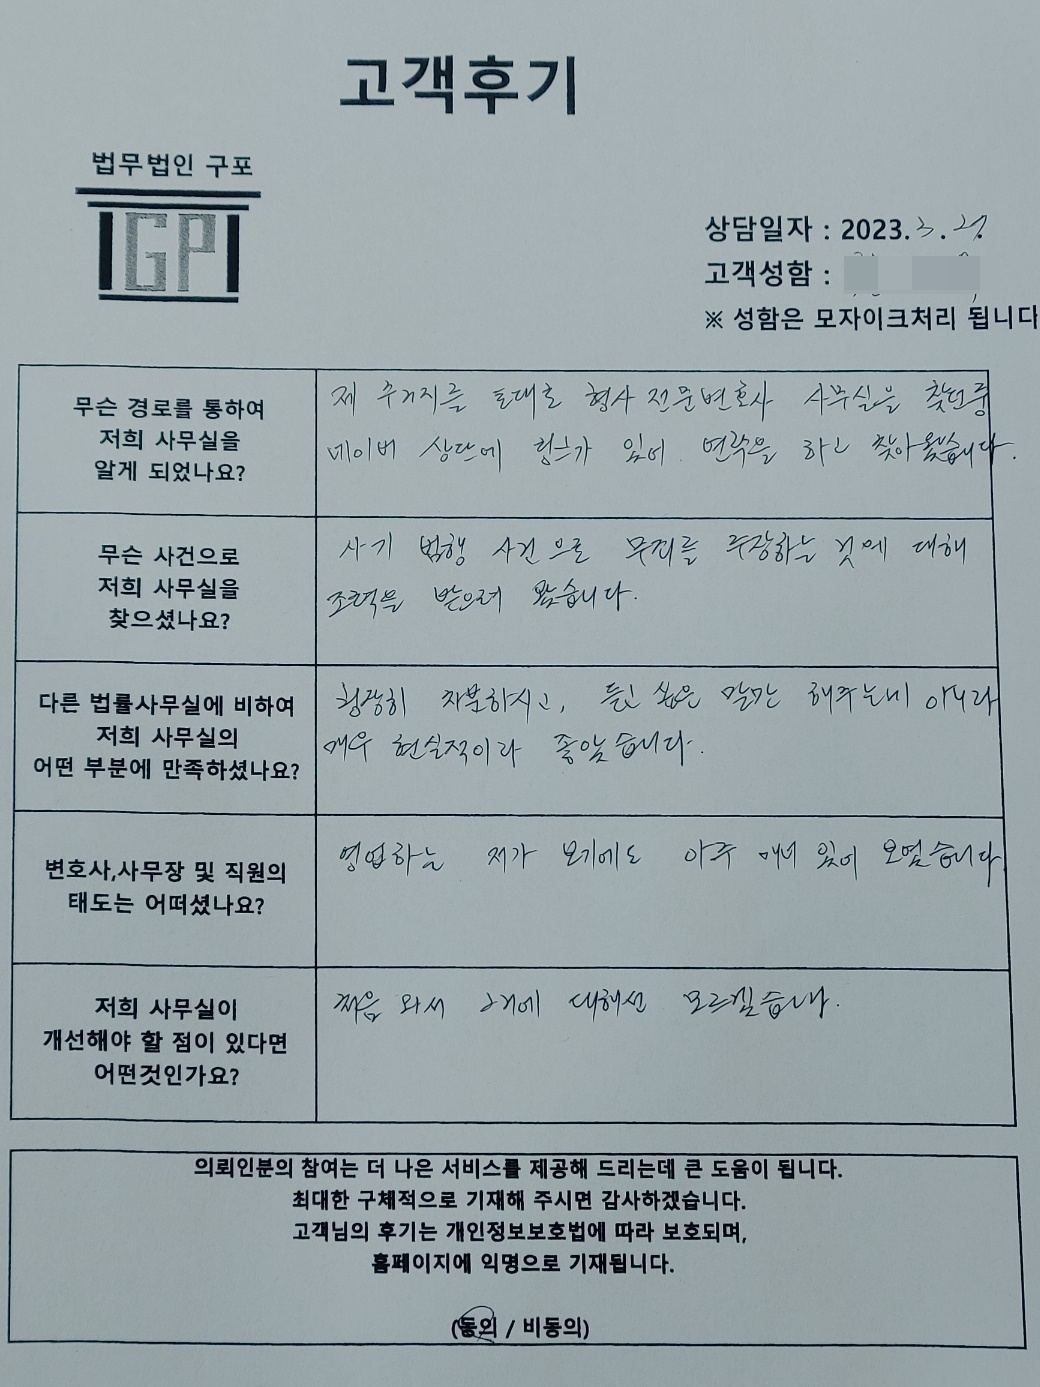 고객후기
법무법인 구포
GP
상담일자 : 2023. 3. 27.
고객성함 :
※ 성함은 모자이크처리 됩니다
무슨 경로를 통하여
저희 사무실을
알게 되었나요?
제 주거지를 토대로 형사 전문변호사 사무실을 찾던중
네이버 상단에 링크가 있어 연락을 하고 찾아왔습니다.
무슨 사건으로
저희 사무실을
찾으셨나요?
사기 범행 사건으로 무죄를 주장하는 것에 대해
조력을 받으려 왔습니다.
다른 법률사무실에 비하여
저희 사무실의
어떤 부분에 만족하셨나요?
굉장히 차분하시고, 듣고 싶은 말만 해주는게 아니라
매우 현실적이라 좋았습니다.
변호사,사무장 및 직원의
태도는 어떠셨나요?
영업하는 제가 보기에도 아주 매너 있어 보였습니다
저희 사무실이
개선해야 할 점이 있다면
어떤것인가요?
처음 와서 거기에 대해선 모르겠습니다.
의뢰인분의 참여는 더 나은 서비스를 제공해 드리는데 큰 도움이 됩니다.
최대한 구체적으로 기재해 주시면 감사하겠습니다.
고객님의 후기는 개인정보보호법에 따라 보호되며,
홈페이지에 익명으로 기재됩니다.
(동의 / 비동의)